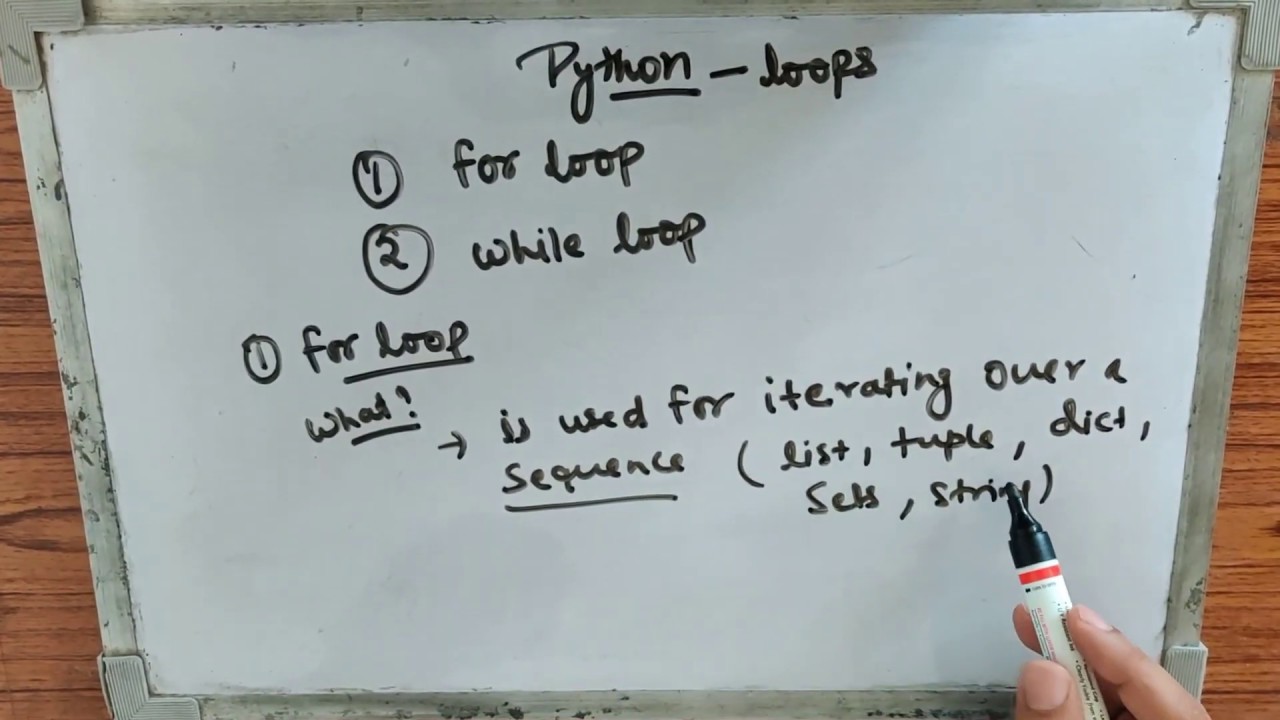 Python - loops
① for loop
② while loop
① for loop
what?
→ is used for iterating over a
sequence ( list, tuple, dict,
sets, string)